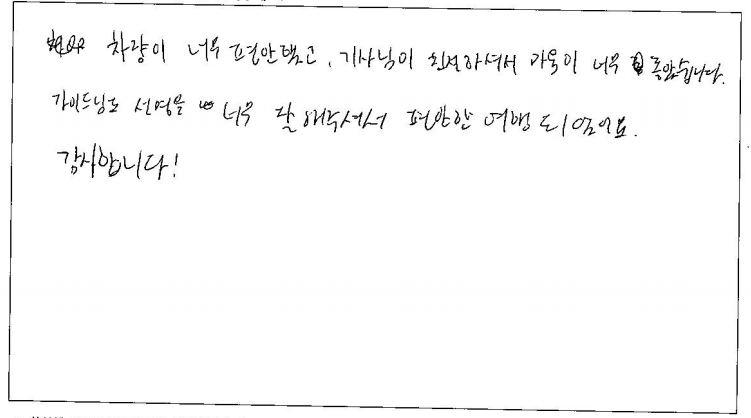 차량이 너무 편안했고, 기사님이 친절하셔서 가족이 너무 좋았습니다.
가이드님도 설명을 너무 잘 해주셔서 편안한 여행 되었어요.
감사합니다!